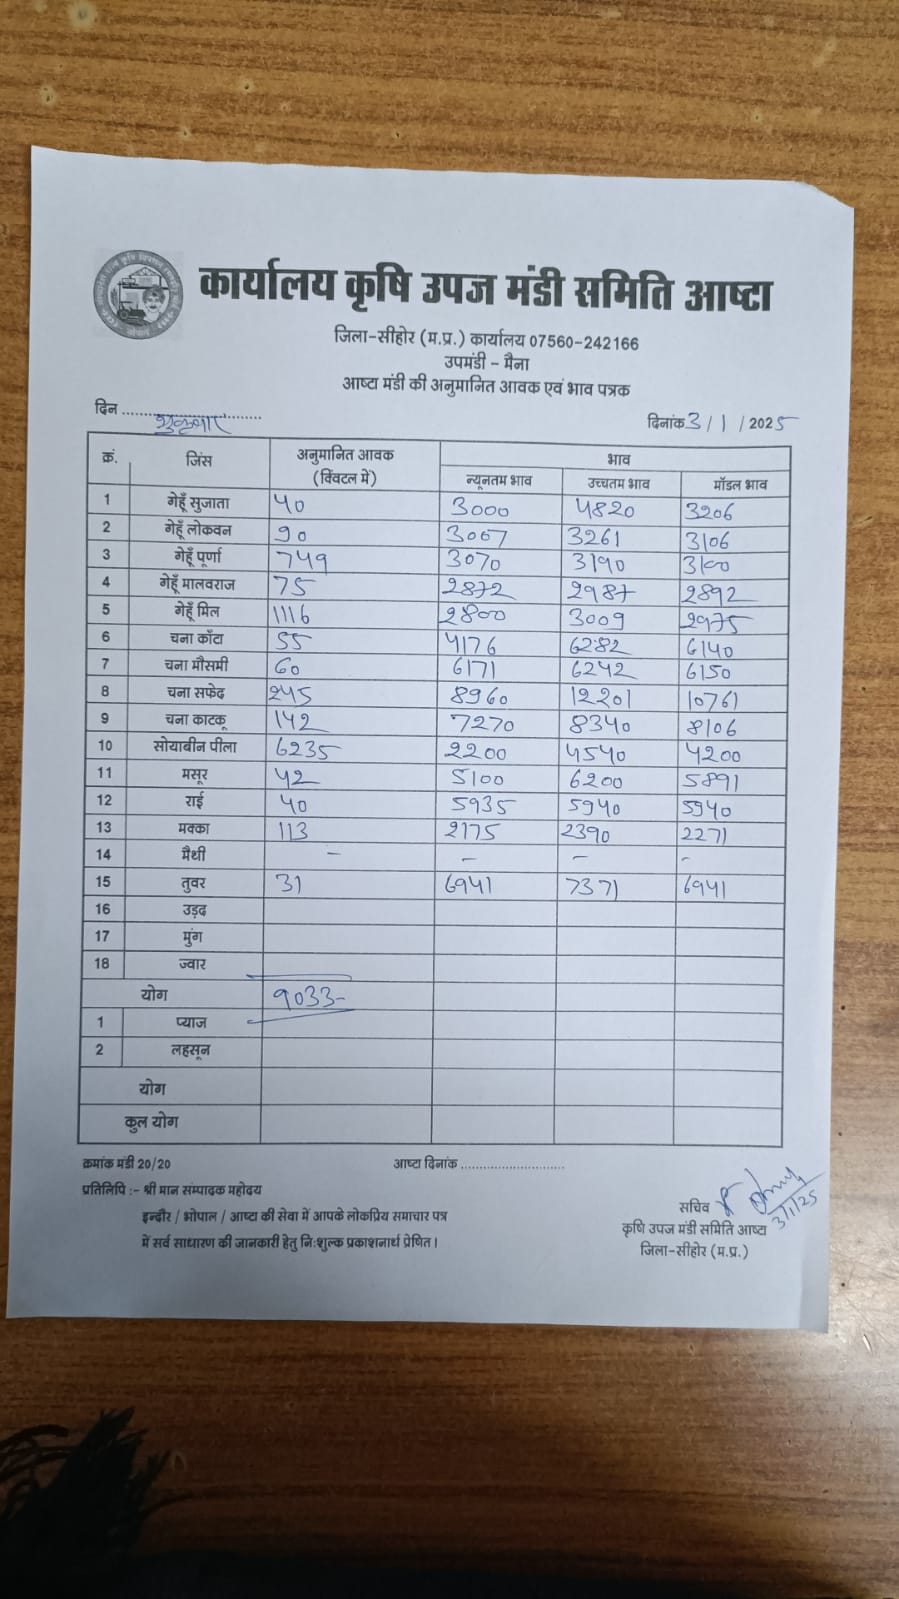 कार्यालय कृषि उपज मंडी समिति आष्टा
जिला-सीहोर (म.प्र.) कार्यालय 07560-242166
उपमंडी - मैना
आष्टा मंडी की अनुमानित आवक एवं भाव पत्रक
दिन ..... शुक्रवार ..... दिनांक 3/1/2025
क्रं. जिंस अनुमानित आवक (क्विंटल में) भाव
न्यूनतम भाव उच्चतम भाव मॉडल भाव
1 गेहूँ सुजाता 40 3000 4820 3206
2 गेहूँ लोकवन 90 3007 3261 3106
3 गेहूँ पूर्णा 749 3070 3190 3100
4 गेहूँ मालवराज 75 2872 2987 2892
5 गेहूँ मिल 1116 2800 3009 2975
6 चना काँटा 55 4176 6282 6140
7 चना मौसमी 60 6171 6242 6150
8 चना सफेद 245 8960 12201 10761
9 चना काटकू 142 7270 8340 8106
10 सोयाबीन पीला 6235 2200 4540 4200
11 मसूर 42 5100 6200 5891
12 राई 40 5935 5940 5940
13 मक्का 113 2175 2390 2271
14 मैथी - - - -
15 तुवर 31 6941 7371 6941
16 उड़द
17 मुंग
18 ज्वार
योग 9033-
1 प्याज
2 लहसून
योग
कुल योग
क्रमांक मंडी 20/20 आष्टा दिनांक .....
प्रतिलिपि :- श्री मान सम्पादक महोदय
इन्दौर / भोपाल / आष्टा की सेवा में आपके लोकप्रिय समाचार पत्र
में सर्व साधारण की जानकारी हेतु नि:शुल्क प्रकाशनार्थ प्रेषित।
सचिव
3/1/25
कृषि उपज मंडी समिति आष्टा
जिला-सीहोर (म.प्र.)